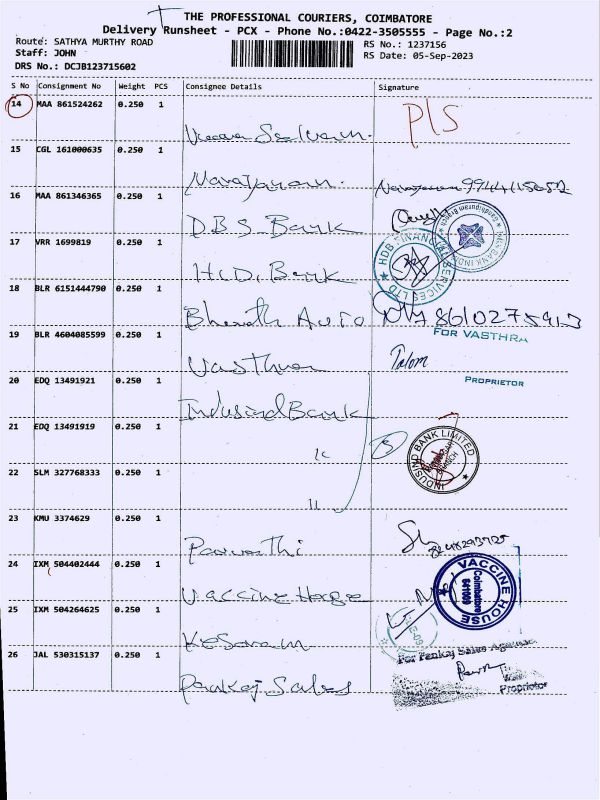 THE PROFESSIONAL COURIERS, COIMBATORE
Delivery Runsheet - PCX - Phone No.:0422-3505555 - Page No.:2
Route: SATHYA MURTHY ROAD
RS No.: 1237156
Staff: JOHN
RS Date: 05-Sep-2023
DRS No.: DCJB123715602
S No Consignment No Weight PCS Consignee Details Signature
14 MAA 861524262 0.250 1
PLS
15 CGL 161000635 0.250 1
Narayanan
16 MAA 861346365 0.250 1
D.B.S. Bank
17 VRR 1699819 0.250 1
HDB FINANCIAL SERVICES LTD
H.D. Bank
18 BLR 6151444790 0.250 1
Bharath Auto
19 BLR 4604085599 0.250 1
FOR VASTHRA
Vasthra
PROPRIETOR
20 EDQ 13491921 0.250 1
Indusind Bank
21 EDQ 13491919 0.250 1
INDUSIND BANK LIMITED
22 SLM 327768333 0.250 1
11
23 KMU 3374629 0.250 1
Parvathi
24 IXM 504402444 0.250 1
VACCINE HOUSE
Coimbatore
Vaccine House
25 IXM 504264625 0.250 1
Kesavam
26 JAL 530315137 0.250 1
For Pankaj Sales Agencies
Proprietor
Pankaj Sales